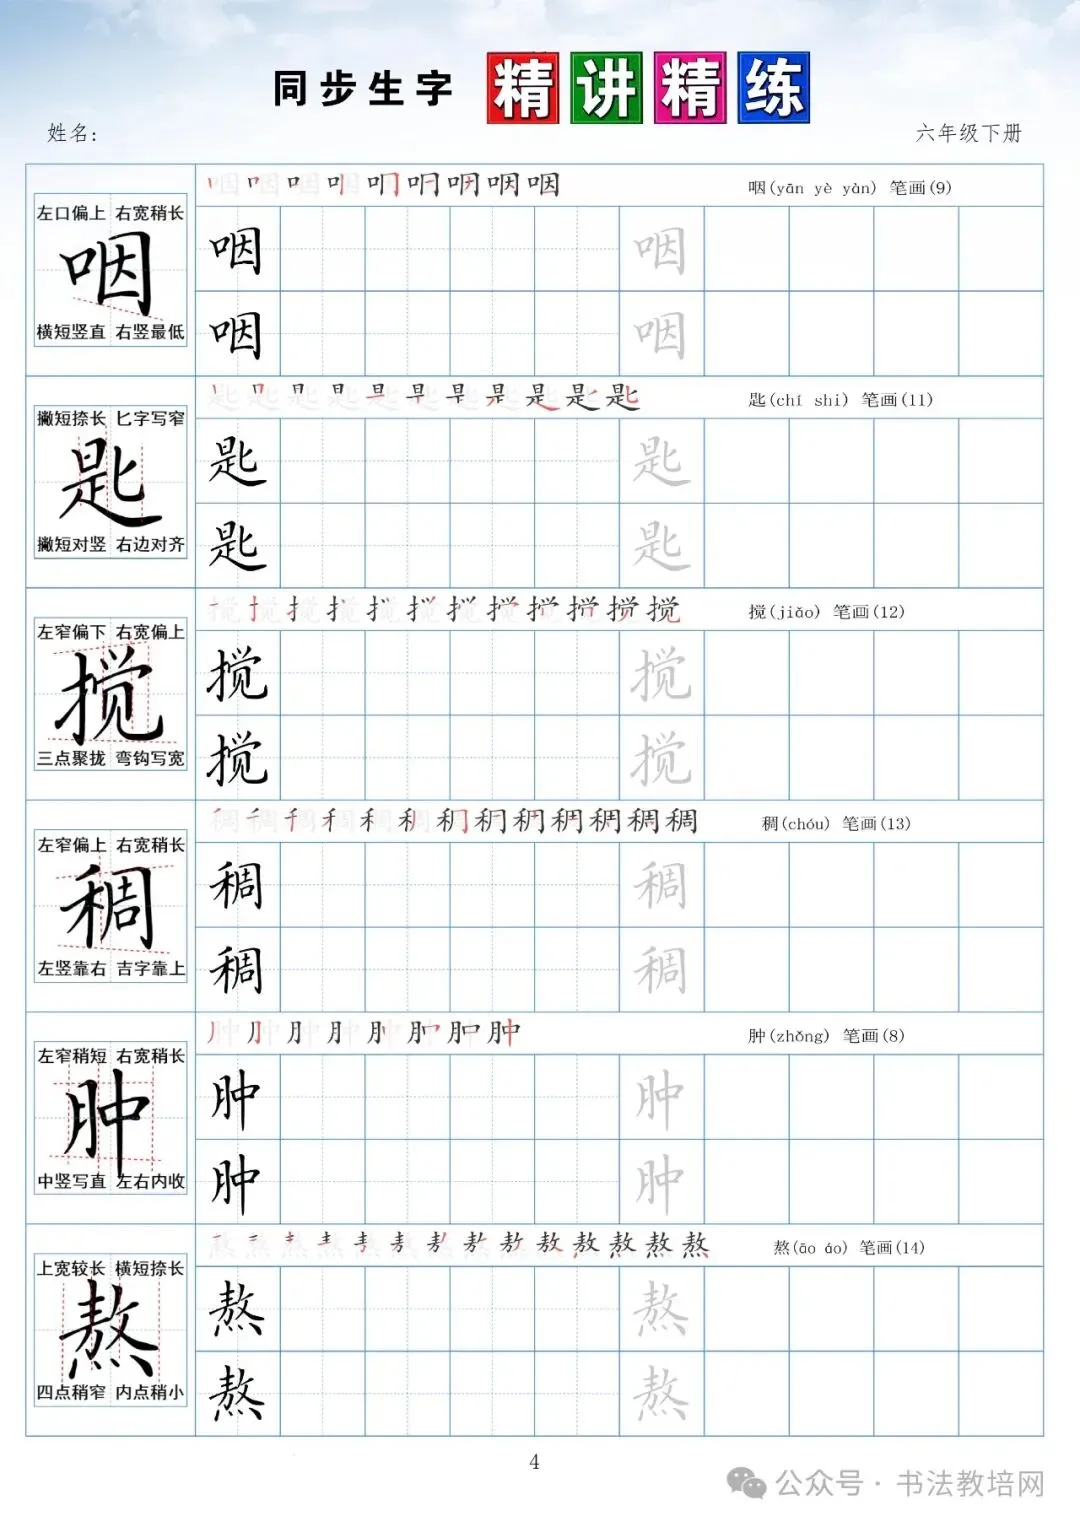 同步生字 精讲精练
姓名: 六年级下册
咽(yān yè yàn) 笔画(9)
左口偏上 右宽稍长
咽
横短竖直 右竖最低
咽 咽
咽 咽
匙(chí shi) 笔画(11)
撇短捺长 匕字写窄
匙
撇短对竖 右边对齐
匙 匙
匙 匙
搅(jiǎo) 笔画(12)
左窄偏下 右宽偏上
搅
三点聚拢 弯钩写宽
搅 搅
搅 搅
稠(chóu) 笔画(13)
左窄偏上 右宽稍长
稠
左竖靠右 吉字靠上
稠 稠
稠 稠
肿(zhǒng) 笔画(8)
左窄稍短 右宽稍长
肿
中竖写直 左右内收
肿 肿
肿 肿
熬(āo áo) 笔画(14)
上宽较长 横短捺长
熬
四点稍窄 内点稍小
熬 熬
熬 熬
4
公众号·书法教培网